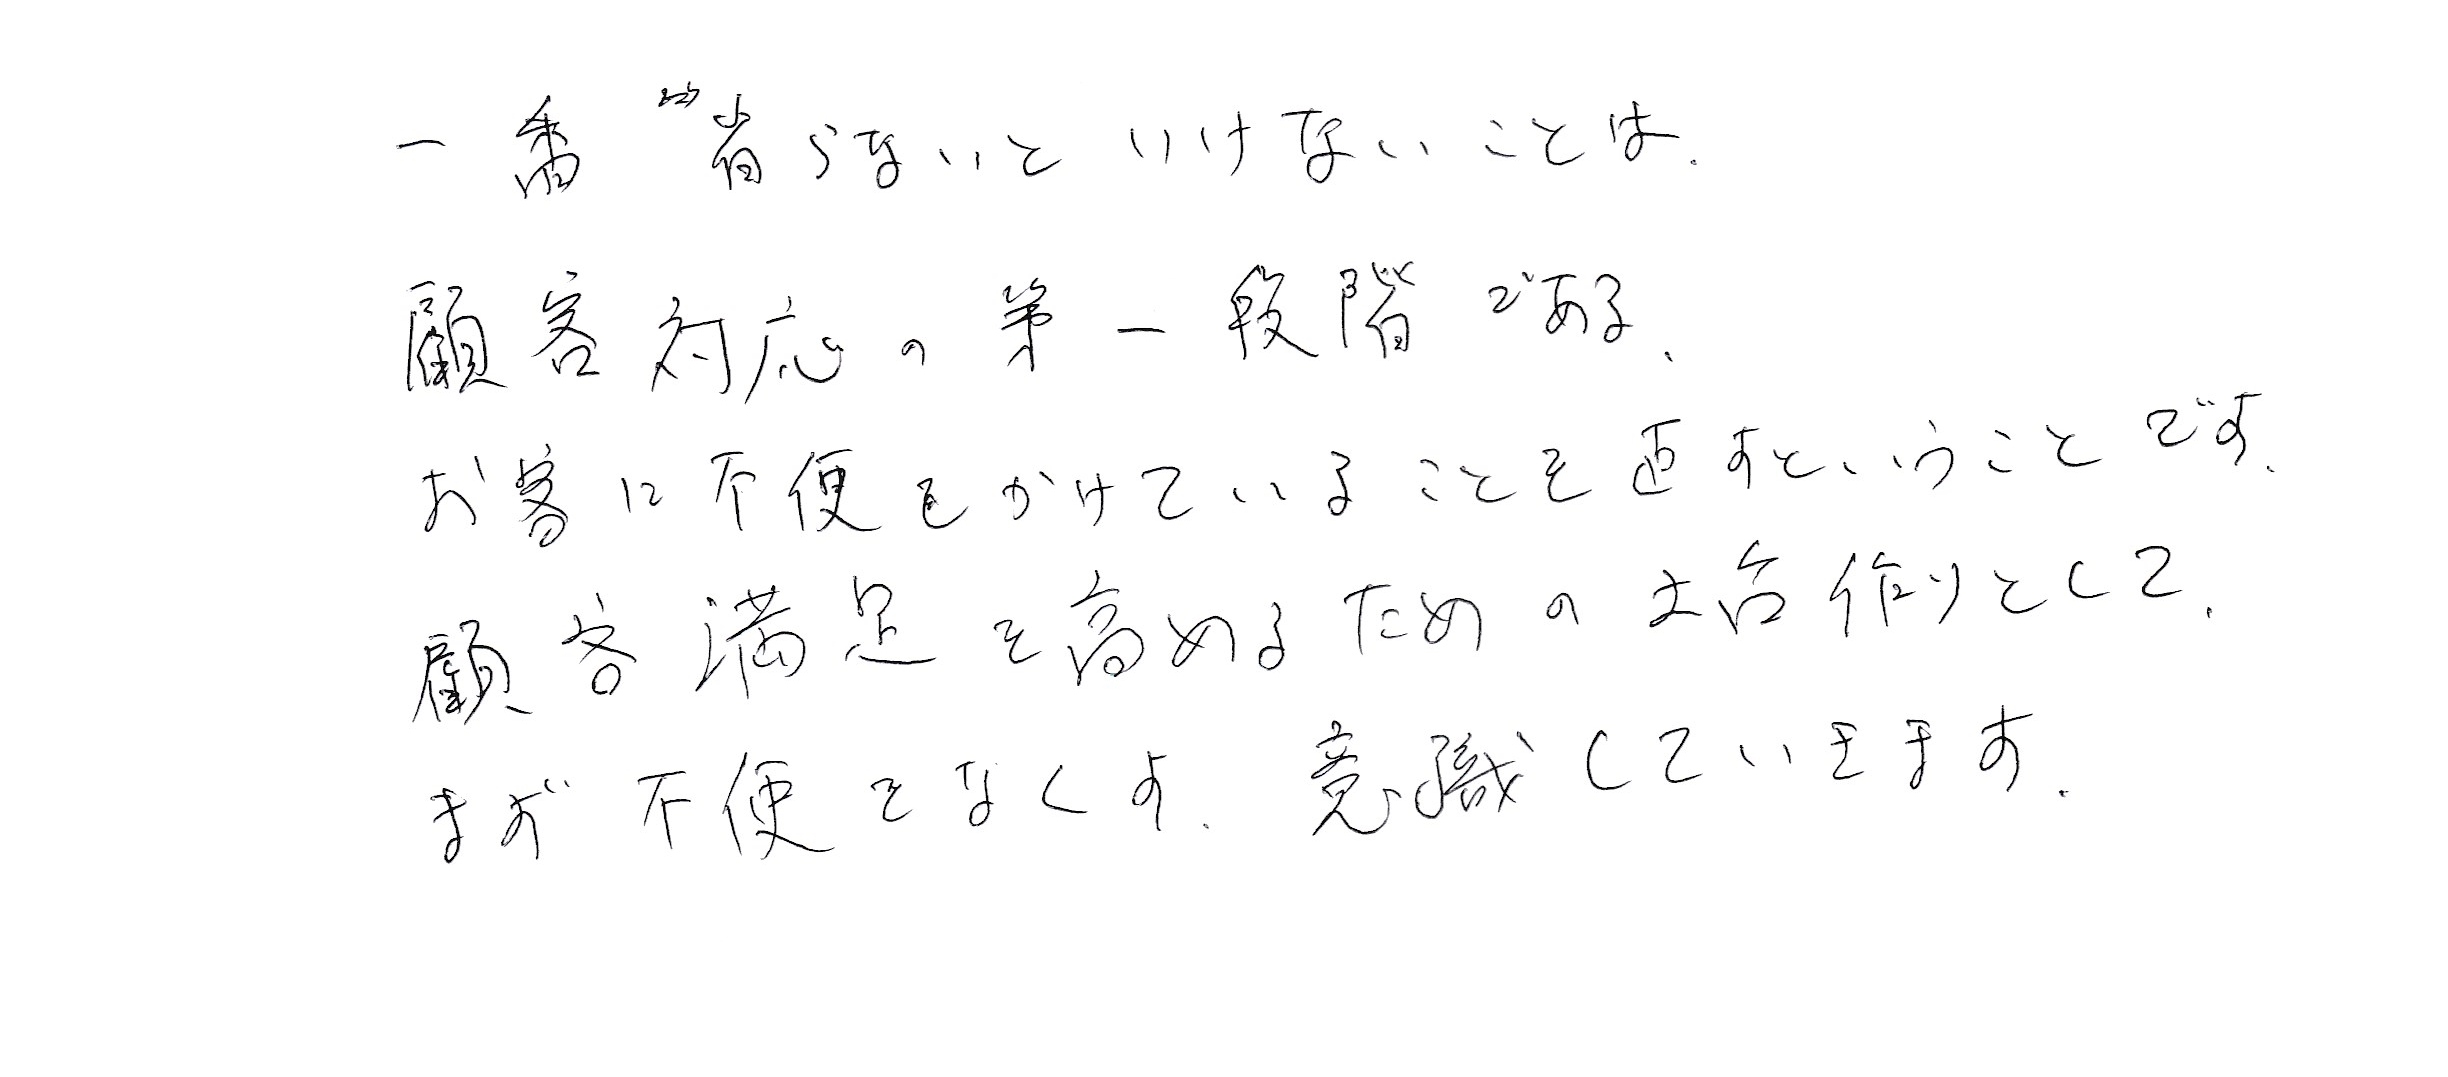 一番省らないといけないことは、
顧客対応の第一段階である、
お客に不便をかけていることを直すということです。
顧客満足を高めるための土台作りとして、
まず不便をなくす、意識しています。